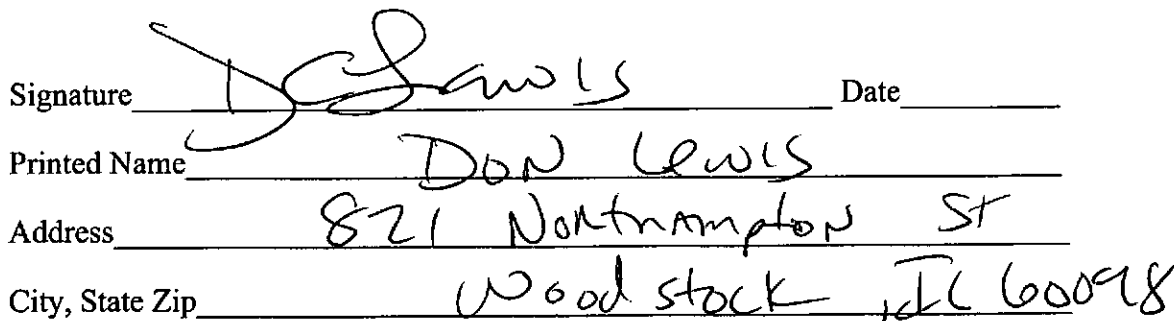 Signature DC Lewis Date
Printed Name Don Lewis
Address 821 Northampton St
City, State Zip Woodstock, IL 60098